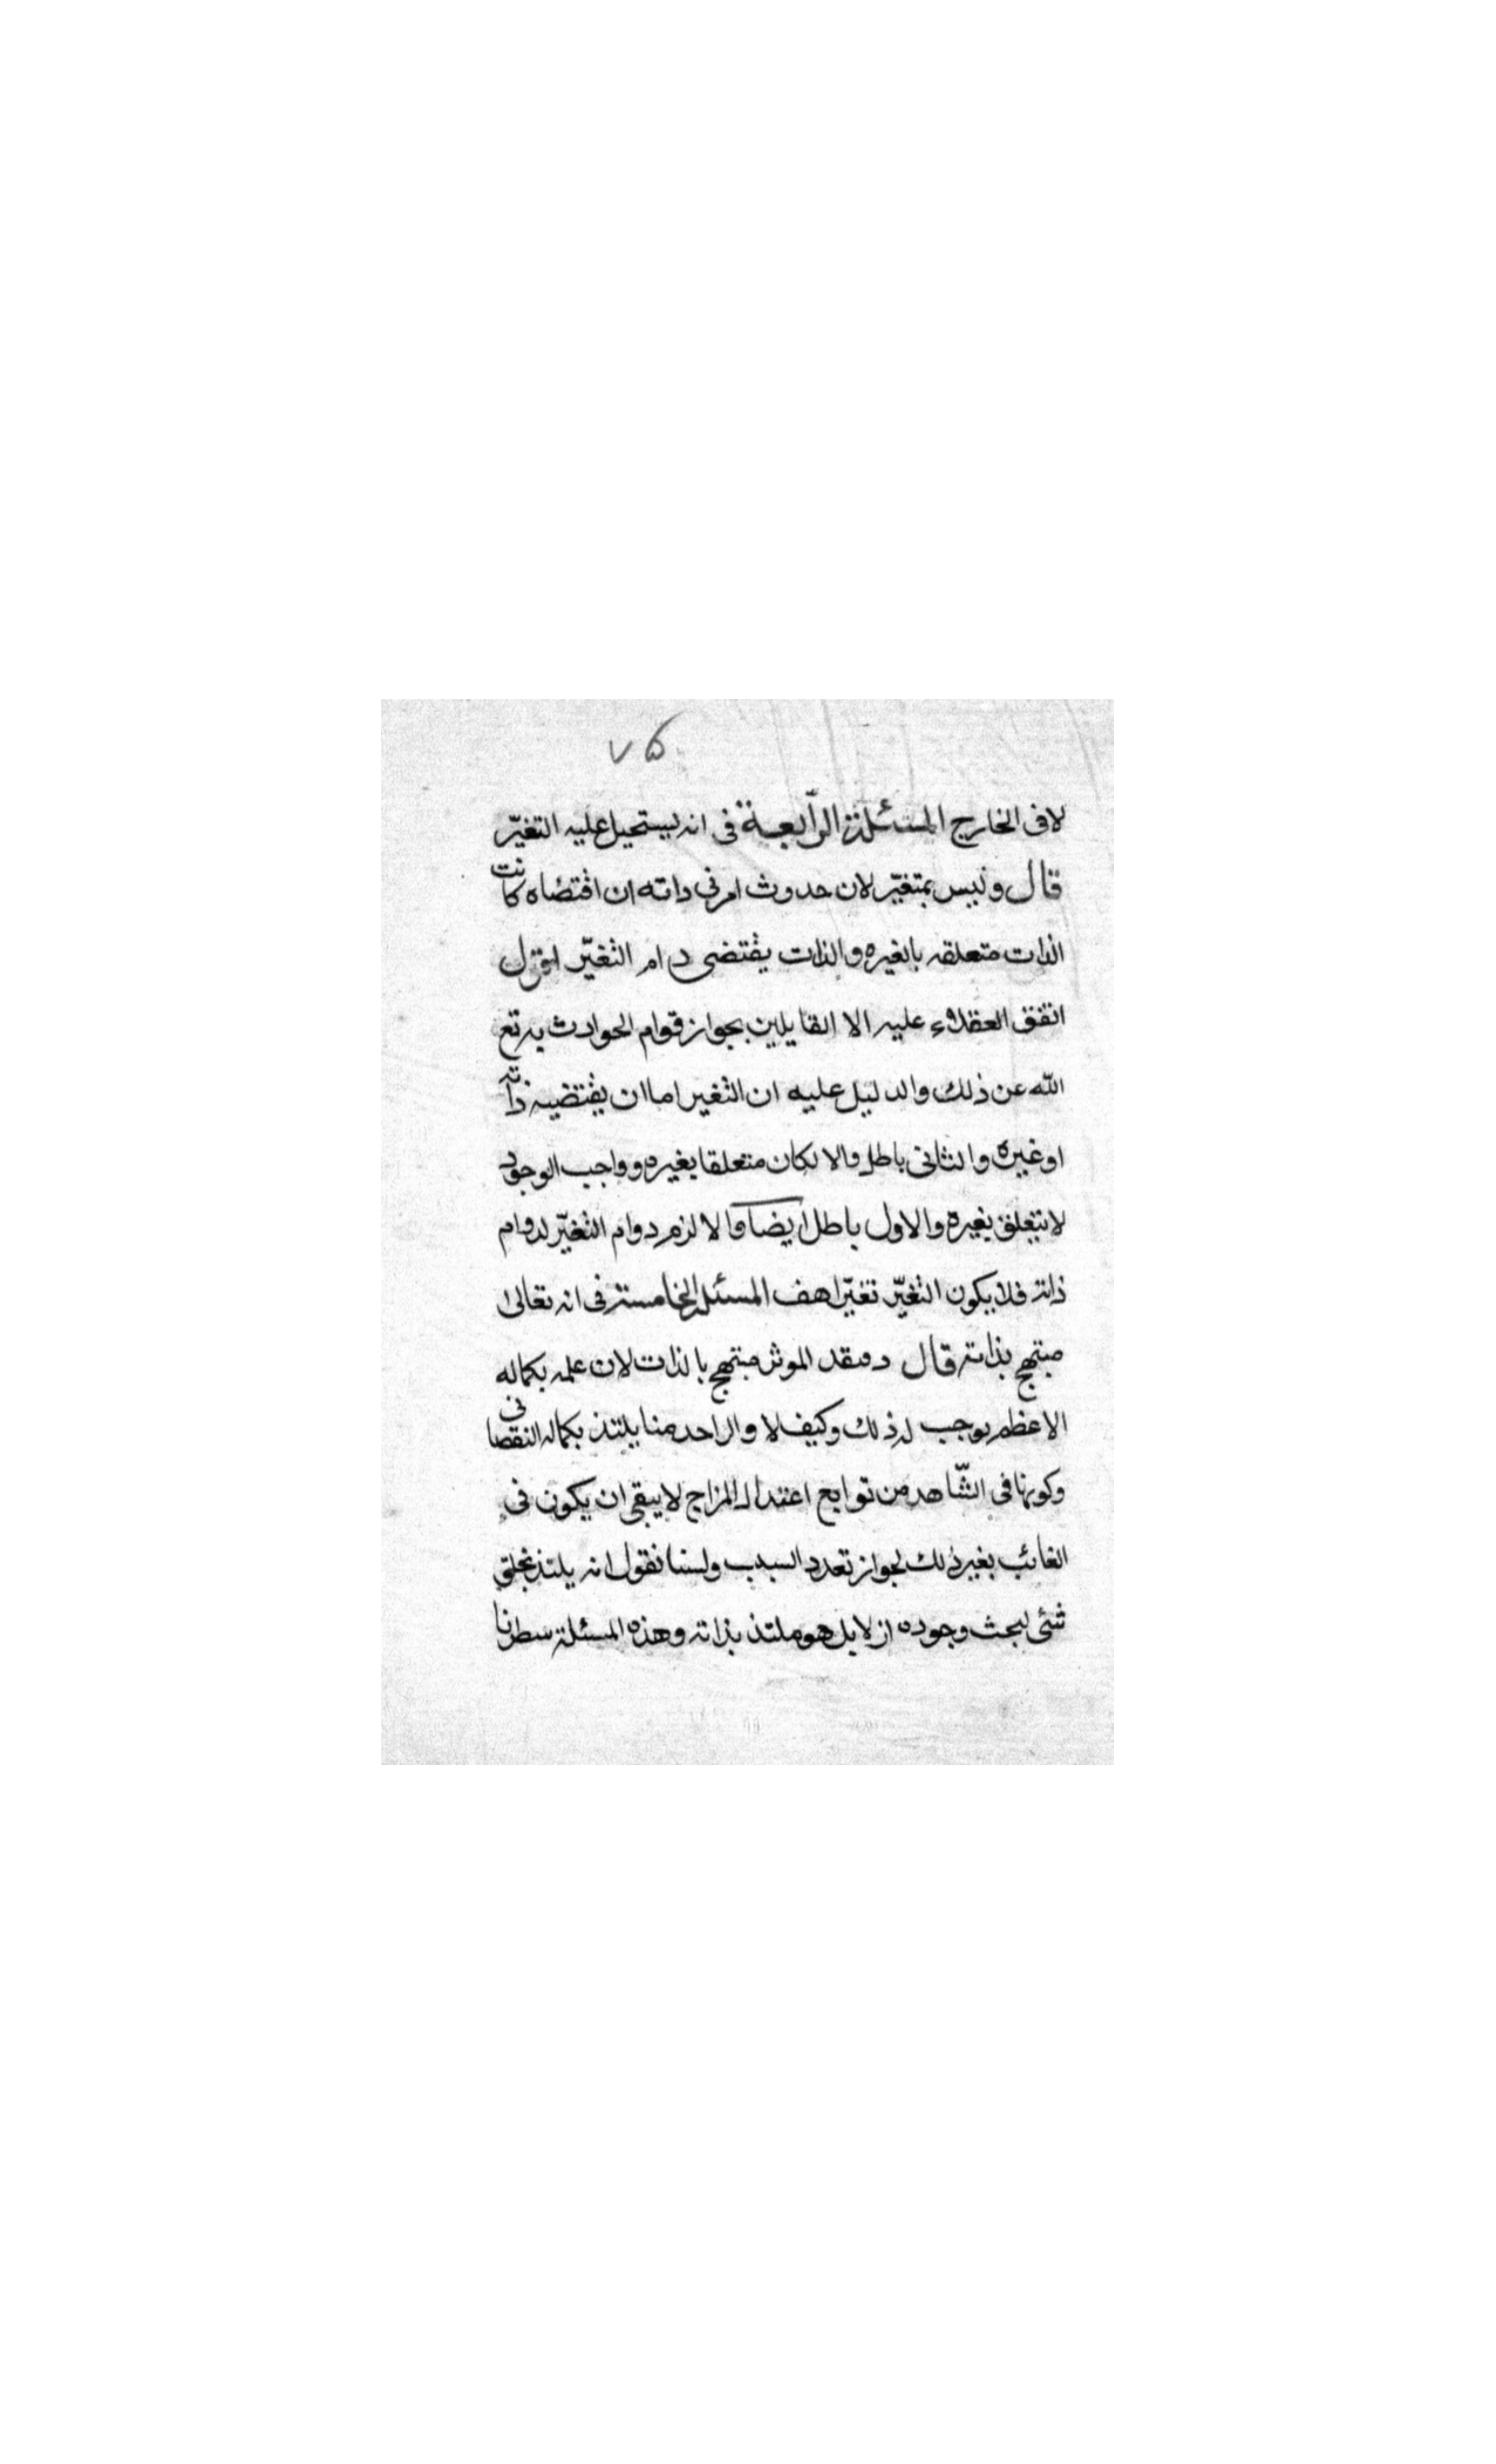 ۷۵
لا فى الخارج المسئلة الرّابعة فى انه يستحيل عليه التغيّر
قال وليس بمتغيّر لان حدوث امر فى ذاته ان اقتضاه كانت
الذات متعلقه بالغيره والذات يقتضى دام التغيّر اقول
اتفق العقلاء عليه الا القايلين بجواز قوام الحوادث به تع
الله عن ذلك والدليل عليه ان التغير اما ان يقتضيه ذاته
او غيره والثانى باطل والا لكان متعلقا بغيره وواجب الوجود
لا يتعلق بغيره والاول باطل ايضا والا لزم دوام التغيّر لدوام
ذاته فلا يكون التغيّر تغيّرا هف المسئلة الخامسة فى انه تعالى
مبتهج بذاته قال المؤثر مبتهج بالذات لان علمه بكماله
الاعظم يوجب له ذلك وكيف لا والواحد منا يلتذ بكماله النقصانى
وكونها فى الشّاهد من توابع اعتدال المزاج لا يبقى ان يكون فى
الغائب بغير ذلك لجواز تعدد السبب ولسنا نقول انه يلتذ بخلق
شئى ليجث وجوده ازلا بل هو ملتذ بذاته وهذه المسئلة سطرنا